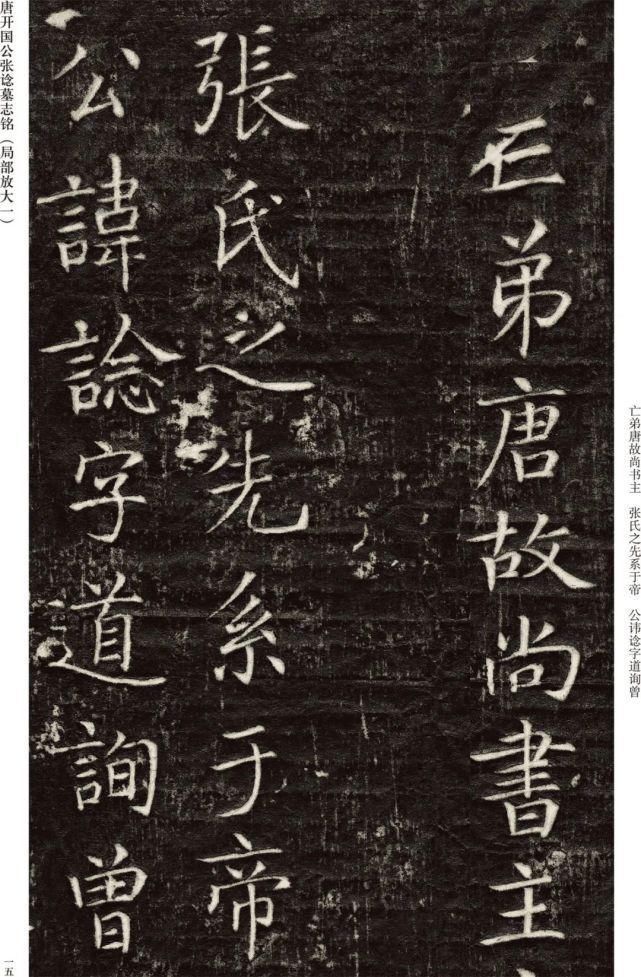 亡弟唐故尚書主
張氏之先系于帝
公諱諗字道詢曾
亡弟唐故尚书主 张氏之先系于帝 公讳谂字道询曾
唐开国公张谂墓志铭（局部放大一）
一五